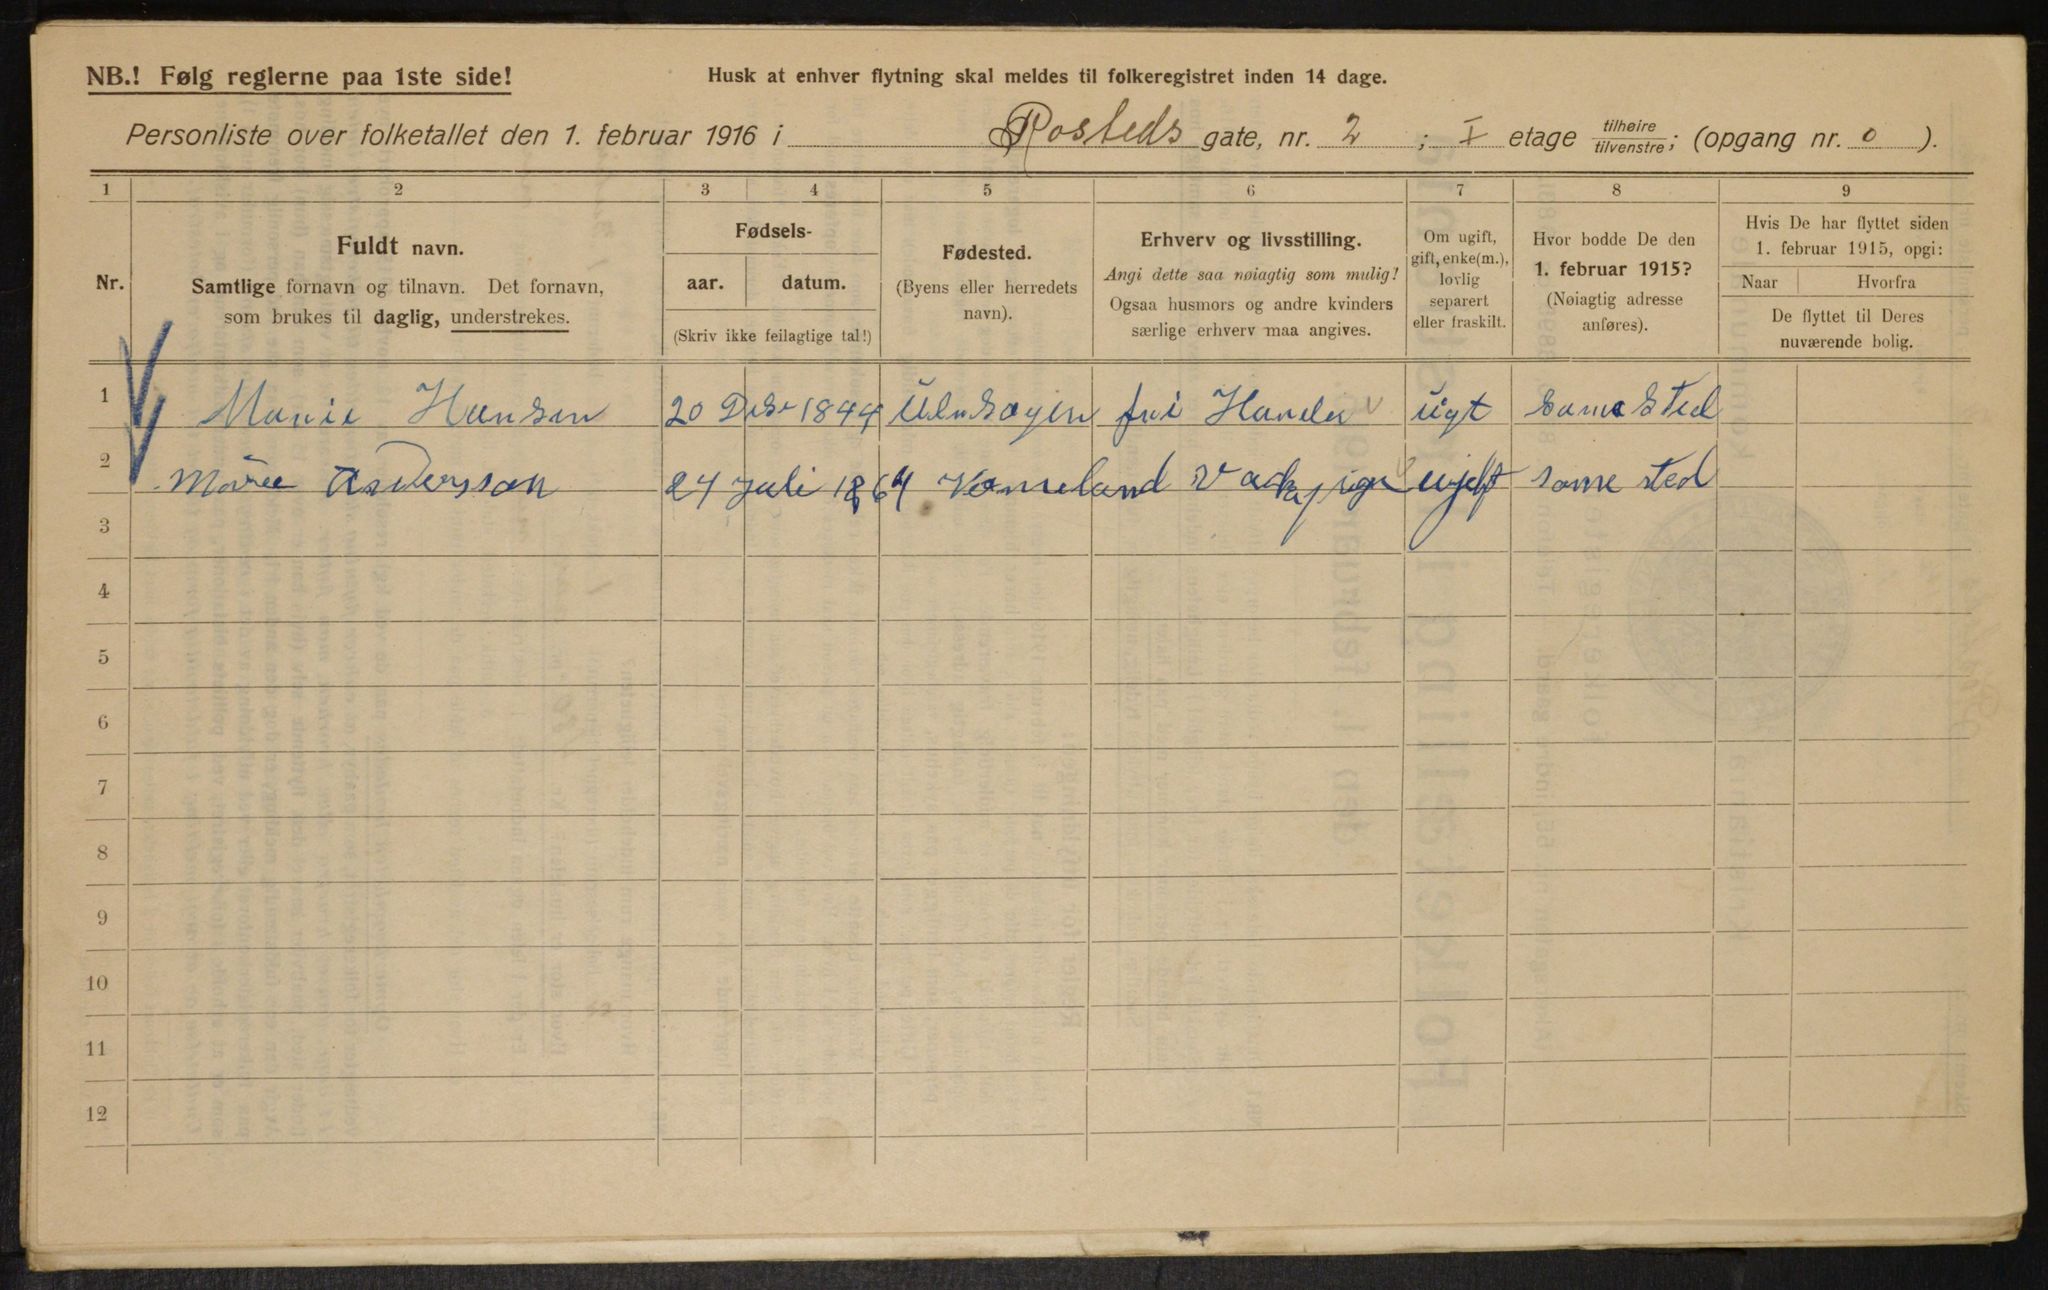 NB.! Følg reglerne paa 1ste side!
Husk at enhver flytning skal meldes til folkeregistret inden 14 dage.
Personliste over folketallet den 1. februar 1916 i Rosteds gate, nr. 2 ; I etage tilhøire tilvenstre; (opgang nr. 0 ).
1 2 3 4 5 6 7 8 9
Nr.
Fuldt navn.
Samtlige fornavn og tilnavn. Det fornavn,
som brukes til daglig, understrekes.
Fødsels-
aar. datum.
(Skriv ikke feilagtige tal!)
Fødested.
(Byens eller herredets
navn).
Erhverv og livsstilling.
Angi dette saa nøiagtig som mulig!
Ogsaa husmors og andre kvinders
særlige erhverv maa angives.
Om ugift,
gift, enke(m.),
lovlig
separert
eller fraskilt.
Hvor bodde De den
1. februar 1915?
(Nøiagtig adresse
anføres).
Hvis De har flyttet siden
1. februar 1915, opgi:
Naar Hvorfra
De flyttet til Deres
nuværende bolig.
1 Marie Hansen 20 1844 ugt same Sted
2 Marie Andersson 24 Juli 1864 ugift same sted
3
4
5
6
7
8
9
10
11
12